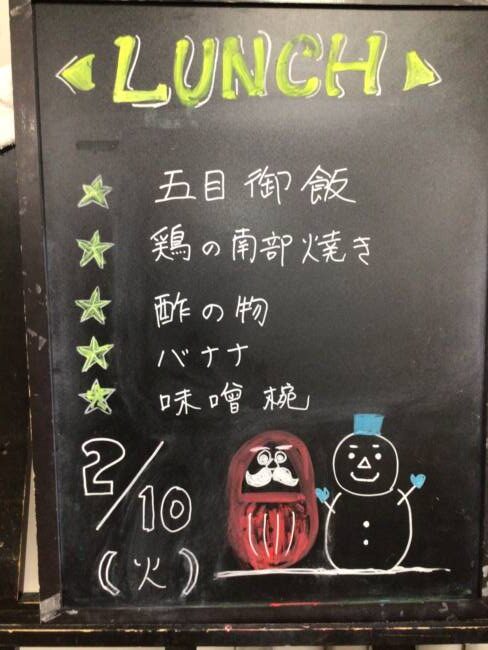 LUNCH
五目御飯
鶏の南部焼き
酢の物
バナナ
味噌椀
2/10
(火)